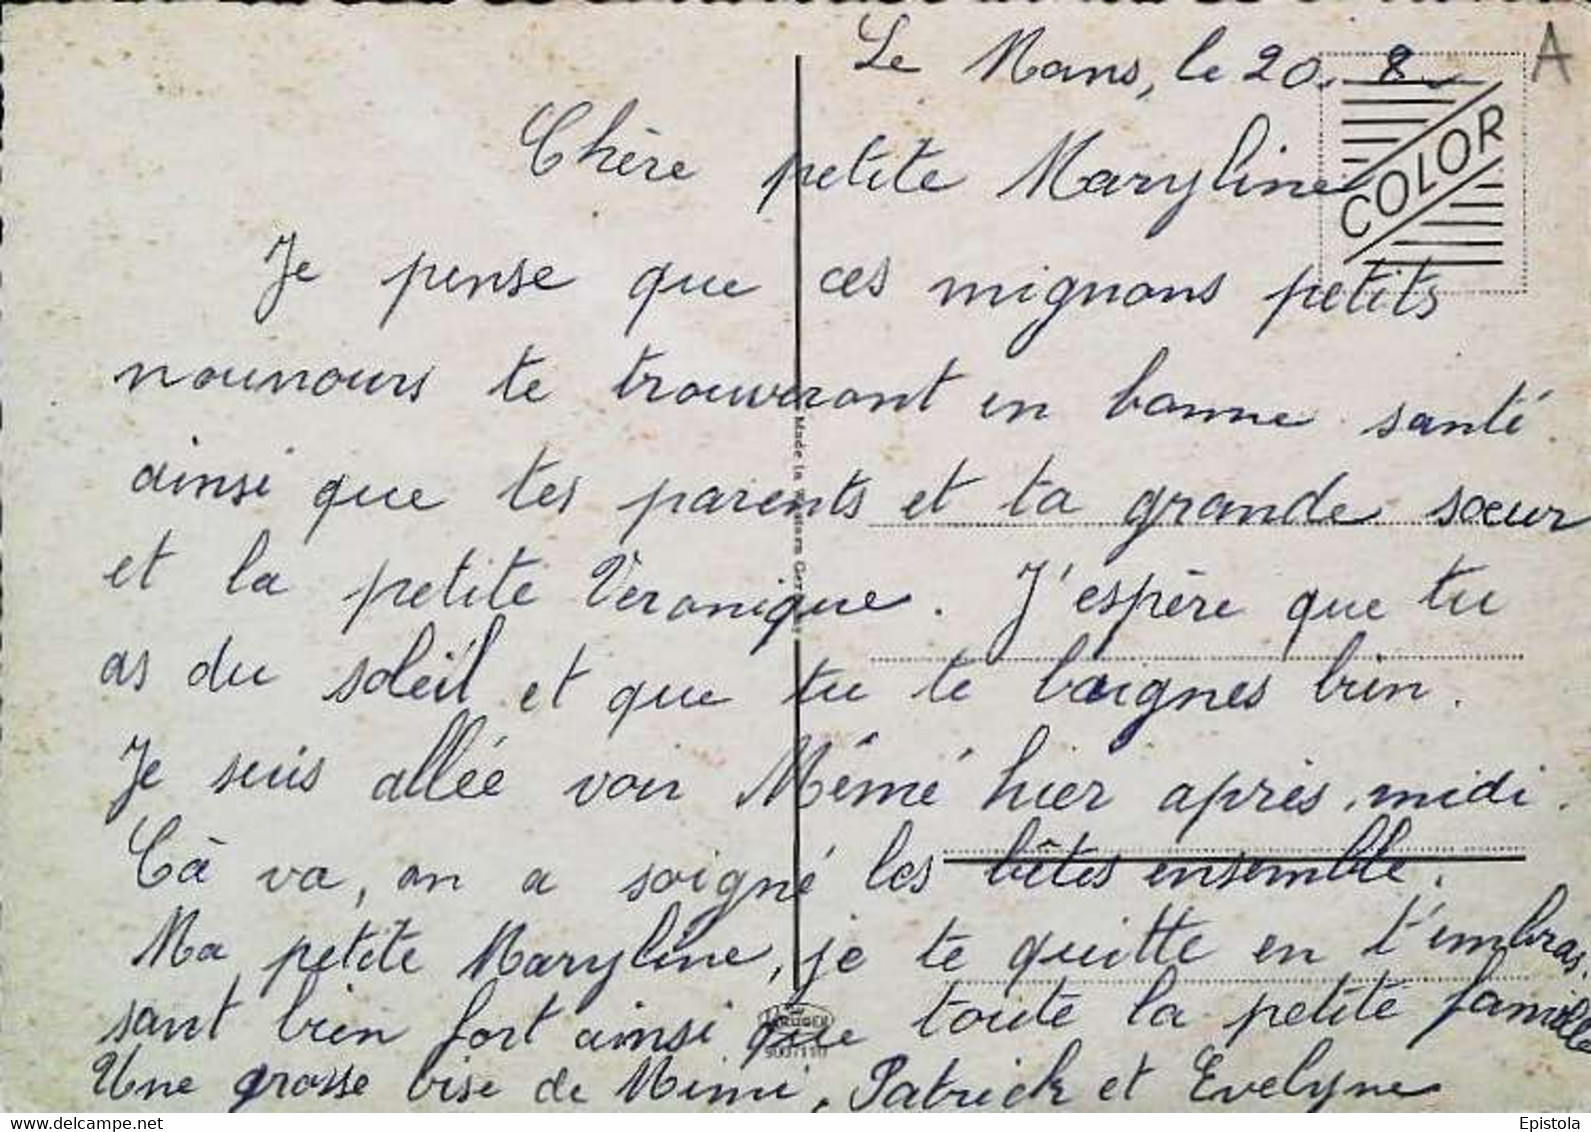 Le Mans, le 20.8
A
COLOR
Chère petite Maryline
Je pense que ces mignons petits
nounours te trouveront en bonne santé
ainsi que tes parents et ta grande sœur
et la petite Véronique. J'espère que tu
as du soleil et que tu te baignes bien.
Je suis allée voir Mémé hier après-midi.
Cà va, on a soigné les bêtes ensemble.
Ma petite Maryline, je te quitte en t'embras-
sant bien fort ainsi que toute la petite famille
Une grosse bise de Mimi, Patrick et Evelyne
Made in Western Germany
KRÜGER
delcampe.net
Epistola